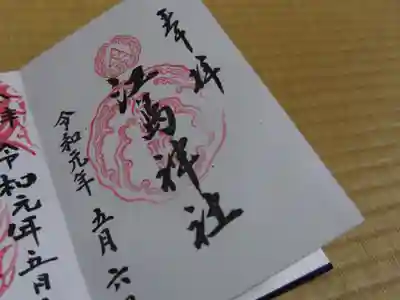 奉拝
江島神社
令和元年 五月 六日
奉
令和元年 五月